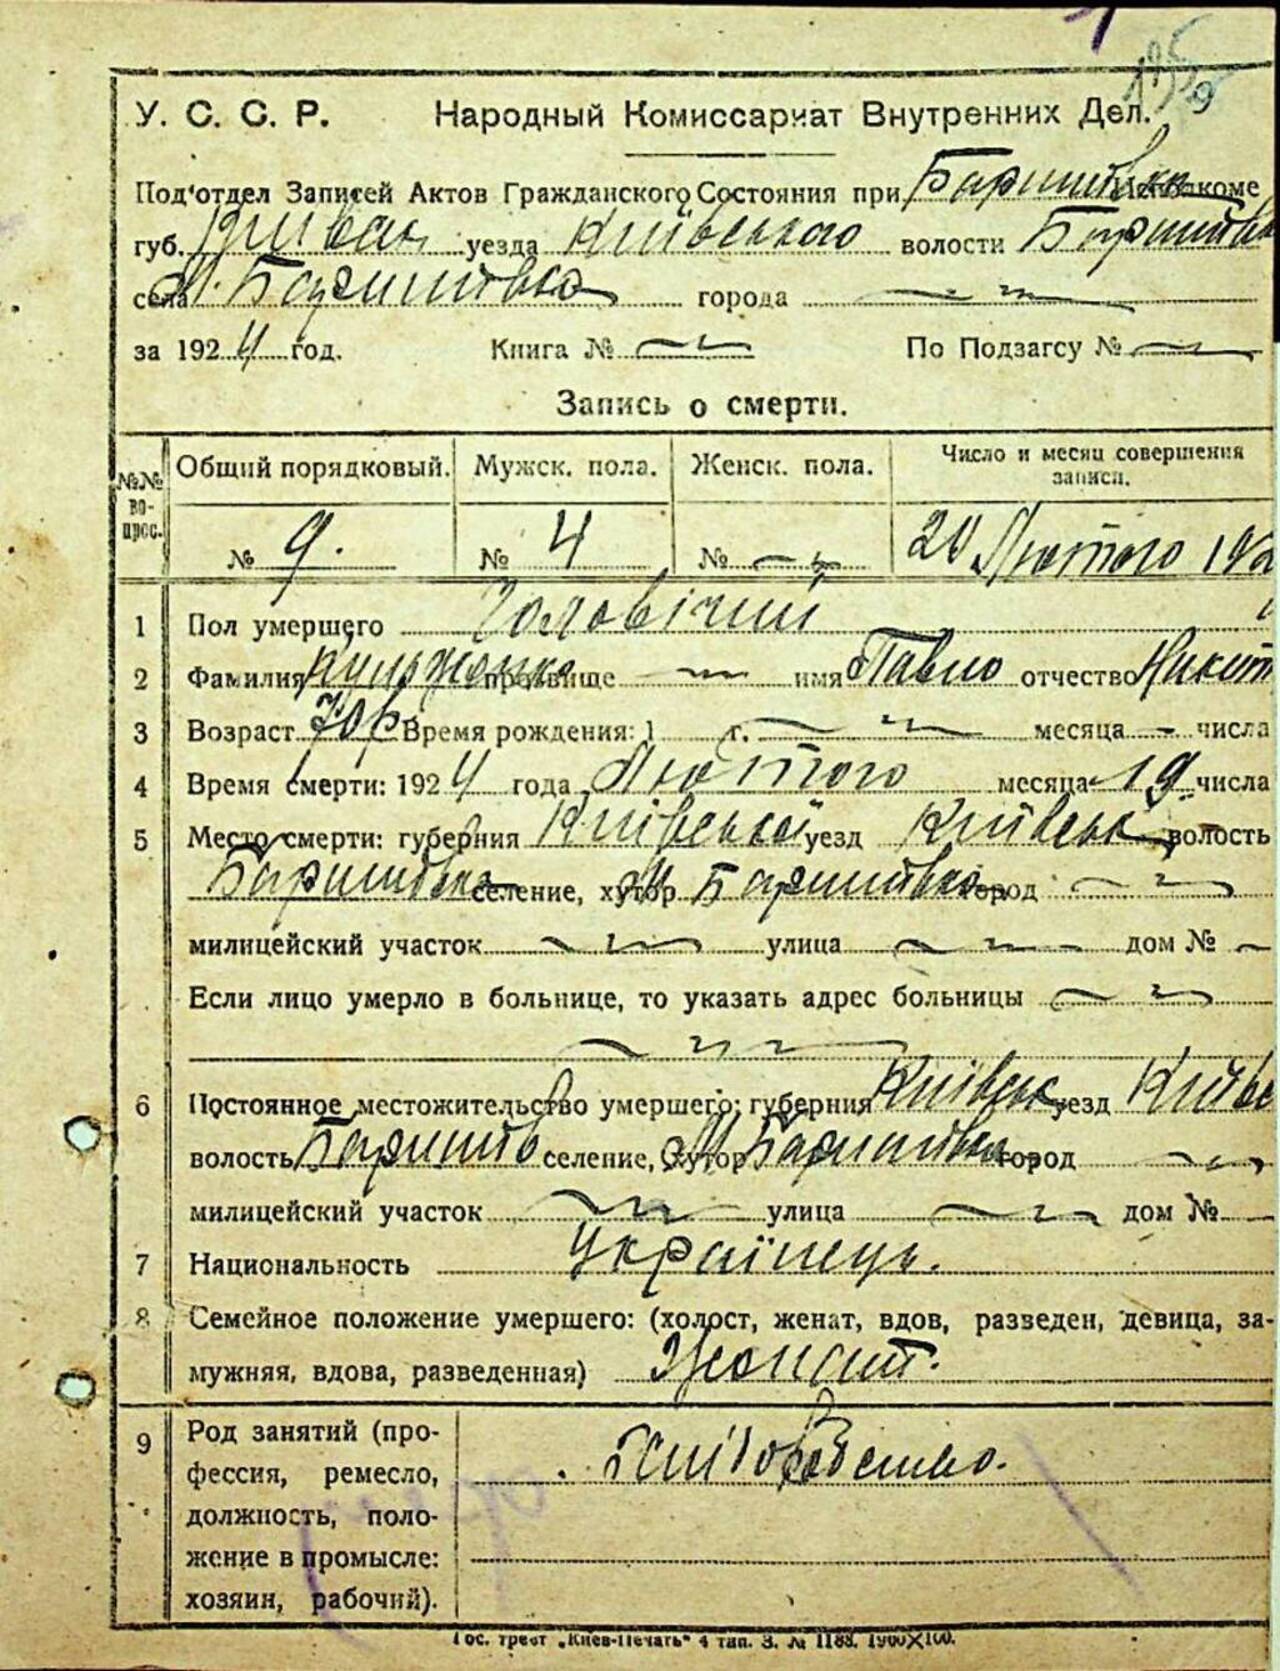 У. С. С. Р. Народный Комиссариат Внутренних Дел.
Под'отдел Записей Актов Гражданского Состояния при Исполкоме
губ. уезда Київського волости
села М. Баришівка города
за 1924 год. Книга № По Подзагсу №
Запись о смерти.
№№ вопрос. Общий порядковый. Мужск. пола. Женск. пола. Число и месяц совершения записи.
№ 9. № 4 № 20 Лютого 192
1 Пол умершего Чоловічий
2 Фамилия прозвище имя Павло отчество Никит
3 Возраст 70 р Время рождения: 1 г. месяца числа
4 Время смерти: 1924 года Лютого месяца 19 числа
5 Место смерти: губерния Київської уезд Київськ волость
Баришівська селение, хутор М Баришівка город
милицейский участок улица дом №
Если лицо умерло в больнице, то указать адрес больницы
6 Постоянное местожительство умершего: губерния Київськ уезд Київс
волость Баришів селение, хутор М Баришівка город
милицейский участок улица дом №
7 Национальность Українець.
8 Семейное положение умершего: (холост, женат, вдов, разведен, девица, за-
мужняя, вдова, разведенная) Жонат.
9 Род занятий (про-
фессия, ремесло,
должность, поло-
жение в промысле:
хозяин, рабочий).
Гос. трест „Киев-Печать" 4 тип. З. № 1188. 1900×100.